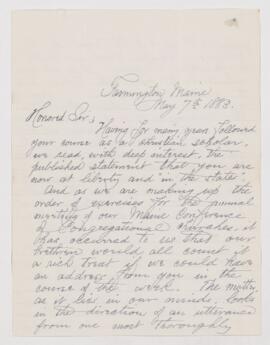 Farmington Maine
May 7th 1883.
Honored Sir,
Having for many years followed
your course as a christian scholar,
we read, with deep interest, the
published statement "that you are
now at liberty and in the state".
And as we are making up the
order of exercises for the annual
meeting of our Maine Conference
of Congregational Churches, it
has occurred to us that our
brethren would all count it
a rich treat if we could have
an address from you in the
course of the week. The matter,
as it lies in our minds, looks
in the direction of an utterance
from one most thoroughly